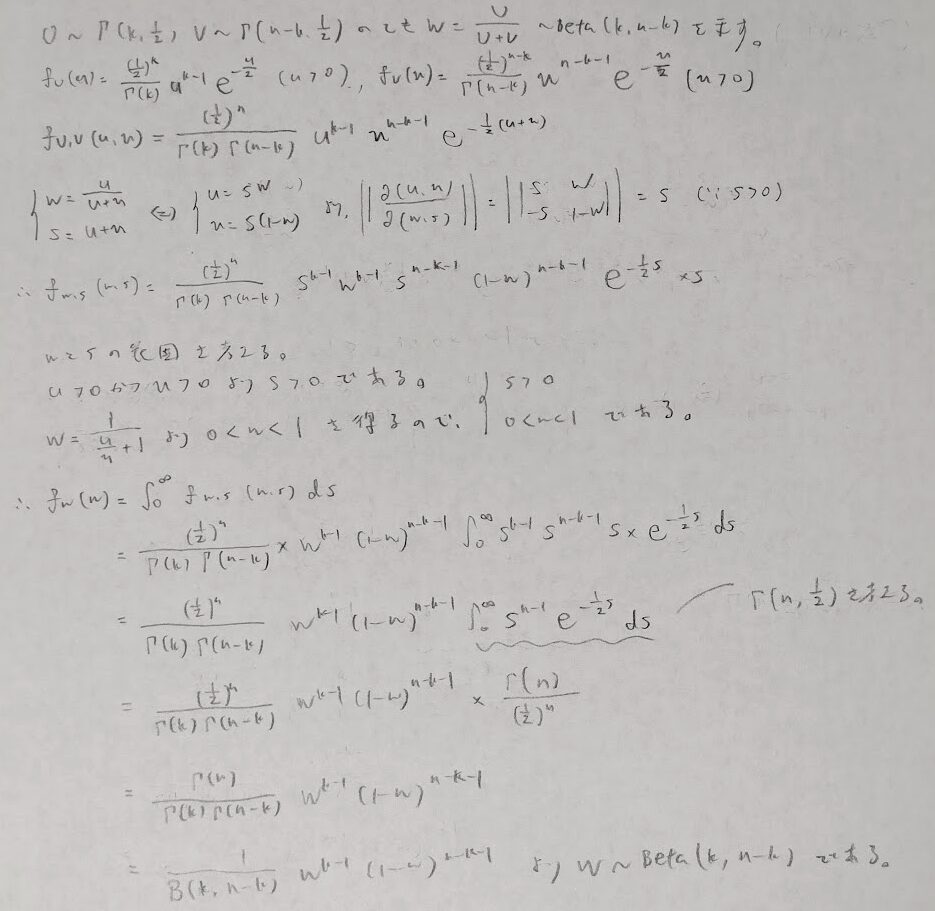 U ~ Γ(k, 1/2), V ~ Γ(n-k, 1/2) のとき W = U/(U+V) ~ Beta(k, n-k) を示す。
f_U(u) = (1/2)^k/Γ(k) u^{k-1} e^{-u/2} (u>0), f_V(v) = (1/2)^{n-k}/Γ(n-k) v^{n-k-1} e^{-v/2} (v>0)
f_{U,V}(u,v) = (1/2)^n/(Γ(k) Γ(n-k)) u^{k-1} v^{n-k-1} e^{-1/2(u+v)}
{ w = u/(u+v), s = u+v ⇔ { u = sw, v = s(1-w) より, ||∂(u,v)/∂(w,s)|| = ||s w; -s 1-w|| = s (∵ s>0)
∴ f_{w,s}(w,s) = (1/2)^n/(Γ(k) Γ(n-k)) s^{k-1} w^{k-1} s^{n-k-1} (1-w)^{n-k-1} e^{-1/2 s} × s
wとsの範囲を考える。
u>0かつv>0よりs>0である。
w = 1/(v/u + 1) より 0<w<1 を得るので, { s>0, 0<w<1 である。
∴ f_W(w) = ∫_0^∞ f_{w,s}(w,s) ds
= (1/2)^n/(Γ(k) Γ(n-k)) × w^{k-1} (1-w)^{n-k-1} ∫_0^∞ s^{k-1} s^{n-k-1} s × e^{-1/2 s} ds
= (1/2)^n/(Γ(k) Γ(n-k)) w^{k-1} (1-w)^{n-k-1} ∫_0^∞ s^{n-1} e^{-1/2 s} ds Γ(n, 1/2)を考える。
= (1/2)^n/(Γ(k) Γ(n-k)) w^{k-1} (1-w)^{n-k-1} × Γ(n)/(1/2)^n
= Γ(n)/(Γ(k) Γ(n-k)) w^{k-1} (1-w)^{n-k-1}
= 1/B(k, n-k) w^{k-1} (1-w)^{n-k-1} より W ~ Beta(k, n-k) である。